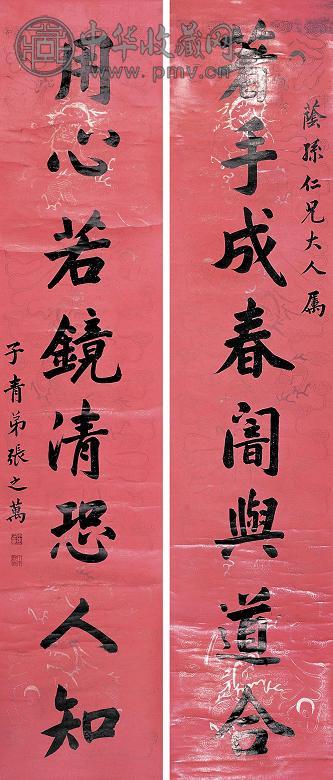 中华收藏网
www.pmv.cn
蔭孫仁兄大人属
着手成春闇與道合
用心若鏡清恐人知
子青弟張之萬